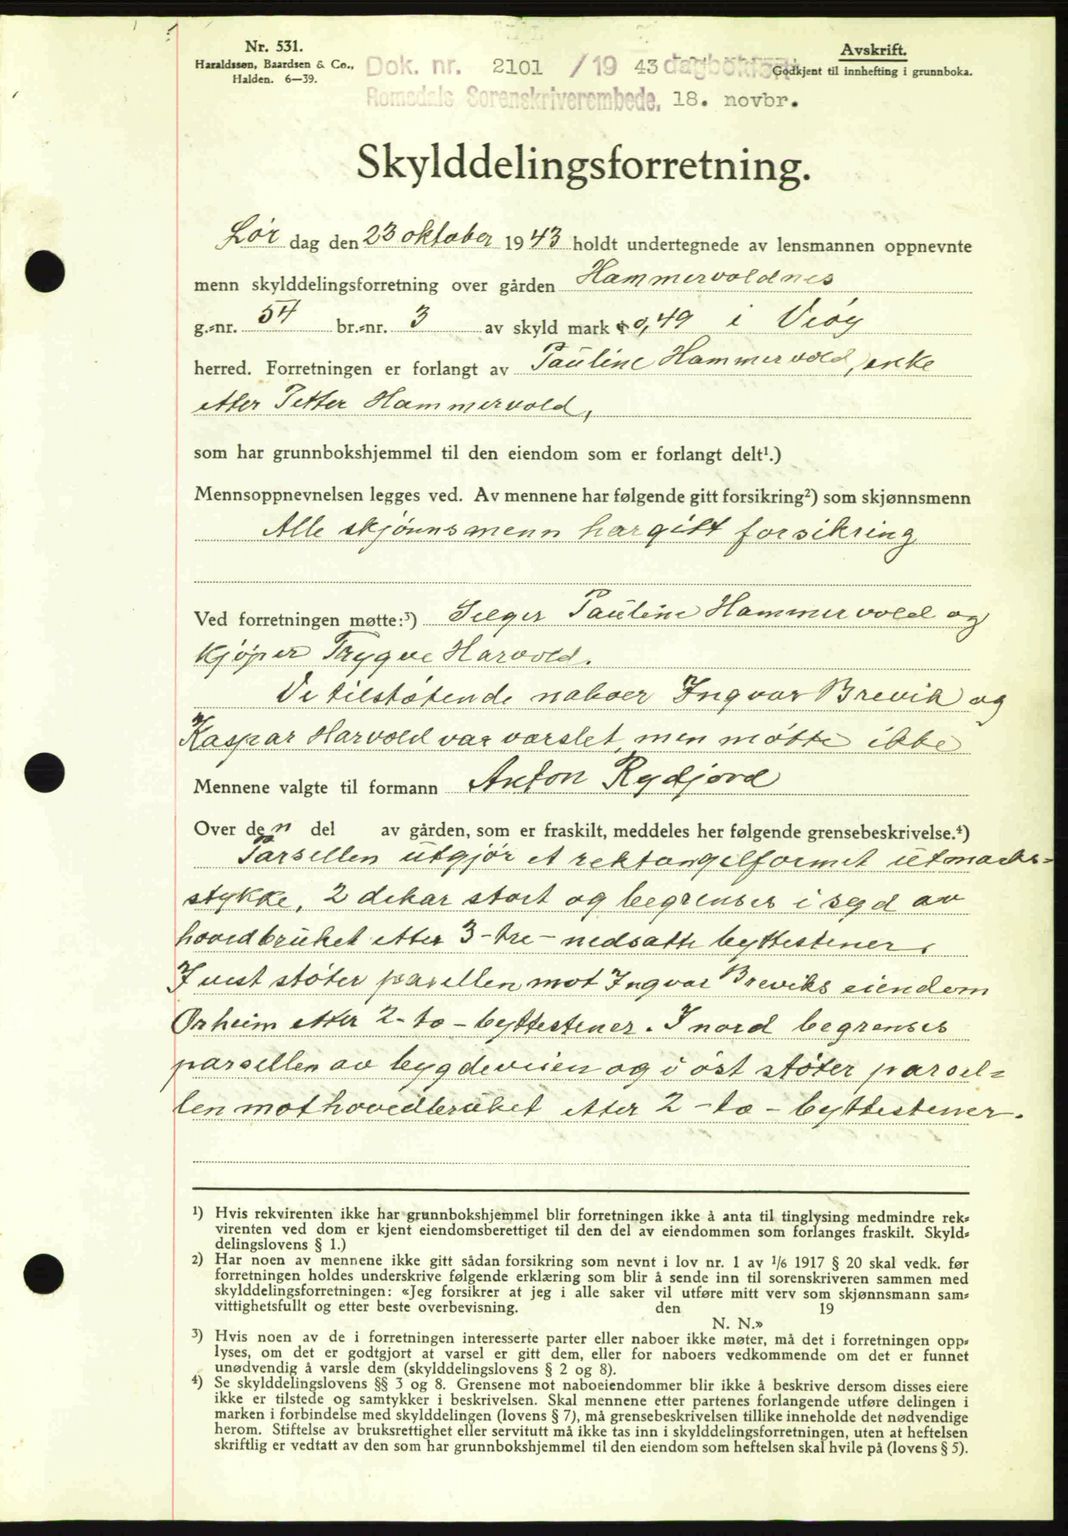 Nr. 531.
Haraldssøn, Baardsen & Co.,
Halden. 6—39.
Dok. nr. 2101 /19 43 dagbokført
Romsdals Sorenskriverembede, 18. novbr.
Avskrift.
Godkjent til innhefting i grunnboka.
Skylddelingsforretning.
Lør dag den 23 oktober 1943 holdt undertegnede av lensmannen oppnevnte
menn skylddelingsforretning over gården Hammervoldnes
g.=nr. 54 br.=nr. 3 av skyld mark 0,49 i Veøy
herred. Forretningen er forlangt av Pauline Hammervold, enke
etter Petter Hammervold,
som har grunnbokshjemmel til den eiendom som er forlangt delt¹.)
Mennsoppnevnelsen legges ved. Av mennene har følgende gitt forsikring²) som skjønnsmenn
Alle skjønnsmenn har gitt forsikring
Ved forretningen møtte:³) Selger Pauline Hammervold og
kjøper Trygve Harvold.
De tilstøtende naboer Ingvar Brevik og
Kaspar Harvold var varslet, men møtte ikke
Mennene valgte til formann Anton Rydjord
Over den del av gården, som er fraskilt, meddeles her følgende grensebeskrivelse.⁴)
Parsellen utgjør et rektangelformet utmarks=
stykke, 2 dekar stort og begrenses i syd av
hovedbruket etter 3-tre- nedsatte byttestener.
I vest støter parsellen mot Ingvar Breviks eiendom
Orheim etter 2-to-byttestener. I nord begrenses
parsellen av bygdeveien og i øst støter parsel=
len mot hovedbruket etter 2-to-byttestener.
¹) Hvis rekvirenten ikke har grunnbokshjemmel blir forretningen ikke å anta til tinglysing medmindre rek=
virenten ved dom er kjent eiendomsberettiget til den del av eiendommen som forlanges fraskilt. Skyld=
delingslovens § 1.)
²) Har noen av mennene ikke gitt sådan forsikring som nevnt i lov nr. 1 av ¹/₆ 1917 § 20 skal vedk. før
forretningen holdes underskrive følgende erklæring som blir å sende inn til sorenskriveren sammen med
skylddelingsforretningen: «Jeg forsikrer at jeg i alle saker vil utføre mitt verv som skjønnsmann sam=
vittighetsfullt og etter beste overbevisning. den 19
N. N.»
³) Hvis noen av de i forretningen interesserte parter eller naboer ikke møter, må det i forretningen opp=
lyses, om det er godtgjort at varsel er gitt dem, eller for naboers vedkommende om det er funnet
unødvendig å varsle dem (skylddelingslovens § 2 og 8).
⁴) Se skylddelingslovens §§ 3 og 8. Grensene mot naboeiendommer blir ikke å beskrive dersom disses eiere
ikke er tilstede og samtykker i beskrivelsen. Skal mennene etter partenes forlangende utføre delingen i
marken i forbindelse med skylddelingen (lovens § 7), må grensebeskrivelsen tillike inneholde det nødvendige
herom. Stiftelse av bruksrettighet eller servitutt må ikke tas inn i skylddelingsforretningen, uten at heftelsen
skriftlig er vedtatt av den som har grunnbokshjemmel til den eiendom som heftelsen skal hvile på (lovens § 5).